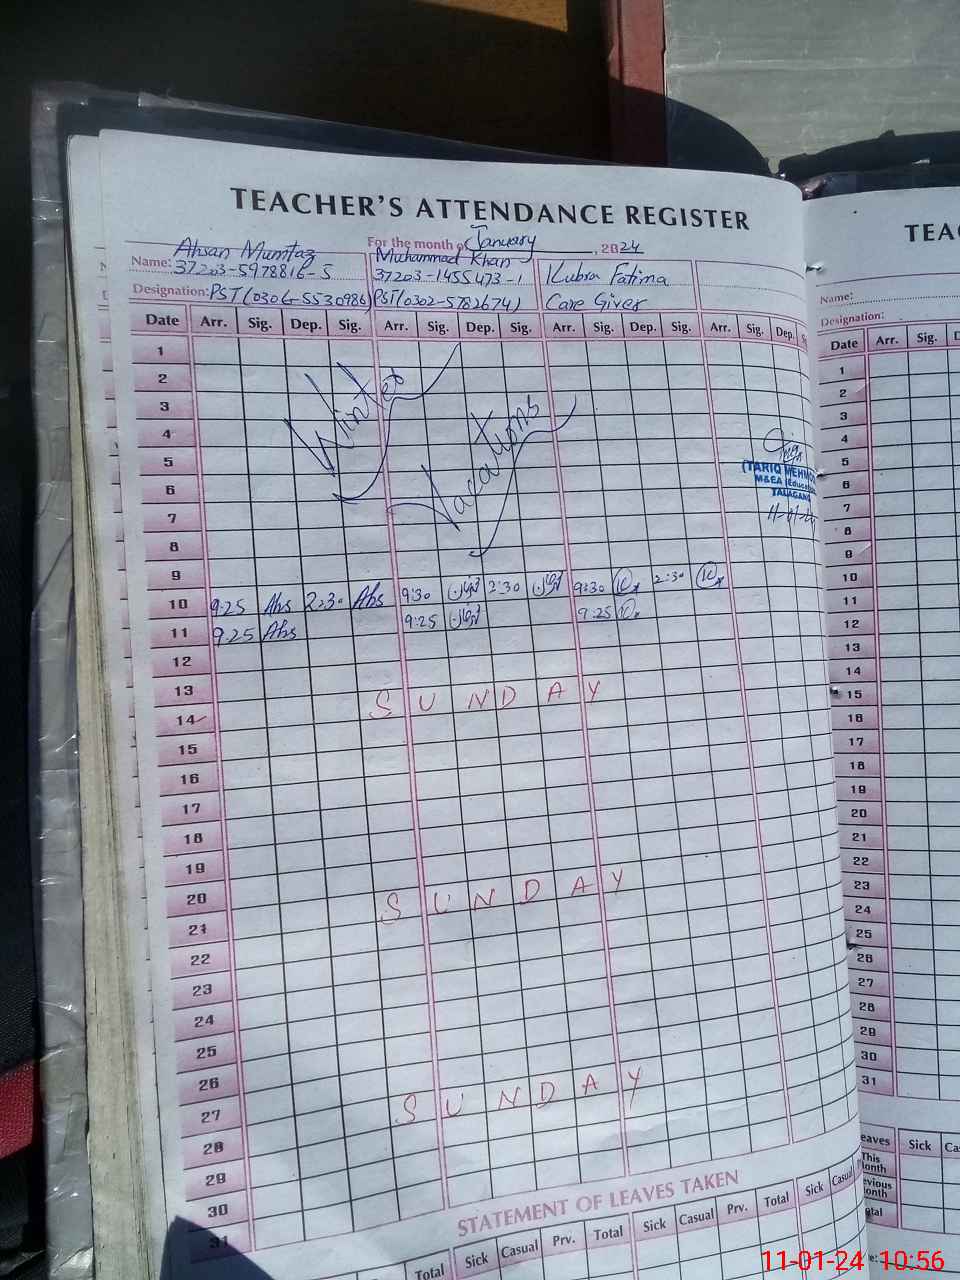 TEACHER'S ATTENDANCE REGISTER
For the month of January, 2024
Name: Ahsan Mumtaz Muhammad Khan Kubra Fatima
37203-5978816-5 37203-1455473-1
Designation: PST (0306-5530986) PST (0302-5782674) Care Giver
Date Arr. Sig. Dep. Sig. Arr. Sig. Dep. Sig. Arr. Sig. Dep. Sig. Arr. Sig. Dep.
1
2
3
4
5
6
7
8
Winter
Vacations
TARIQ MEHMO
M&EA (Educat
TALAGANG
9
10 9:25 Ahs 2:30 Ahs 9:30 2:30 9:30 2:30
11 9:25 Ahs 9:25 9:25
12
13
14 SUNDAY
15
16
17
18
19
20
21 SUNDAY
22
23
24
25
26
27
28 SUNDAY
29
30
31
STATEMENT OF LEAVES TAKEN
Total Sick Casual Prv. Total Sick Casual Prv. Total Sick Casual
TEAC
Name:
Designation:
Date Arr. Sig. D
1
2
3
4
5
6
7
8
9
10
11
12
13
14
15
16
17
18
19
20
21
22
23
24
25
26
27
28
29
30
31
eaves Sick Cas
This
onth
evious
onth
otal
11-01-24 10:56